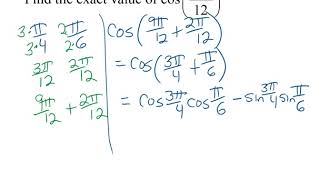 Find the exact value of cos( /12)
3·π/3·4 2π/2·6
3π/12 2π/12
9π/12 + 2π/12
cos(9π/12 + 2π/12)
= cos(3π/4 + π/6)
= cos 3π/4 cos π/6 - sin 3π/4 sin π/6